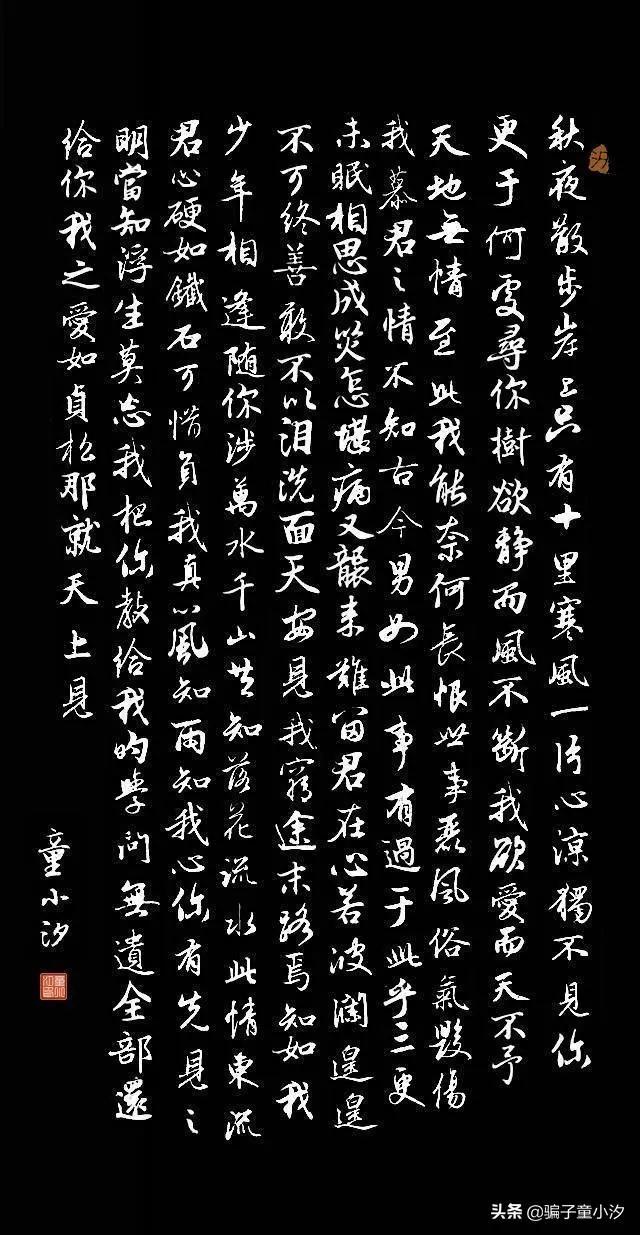 秋夜散步岸上只有十里寒風一片心涼獨不見你
更于何處尋你樹欲靜而風不斷我欲愛而天不予
天地無情至此我能奈何長恨世事惡風俗氣毀傷
我慕君之情不知古今男女此事有過于此乎三更
未眠相思成災怎堪病又襲来難留君在心若波瀾遑遑
不可終善敢不以泪洗面天安見我窮途末路焉知如我
少年相逢随你涉萬水千山共知落花流水此情東流
君心硬如鐵石可惜負我真心風知雨知我心你有先見之
明當知浮生莫忘我把你教給我的學问無遺全部還
給你我之愛如貞松那就天上見
童小汐
汐
头条 @骗子童小汐